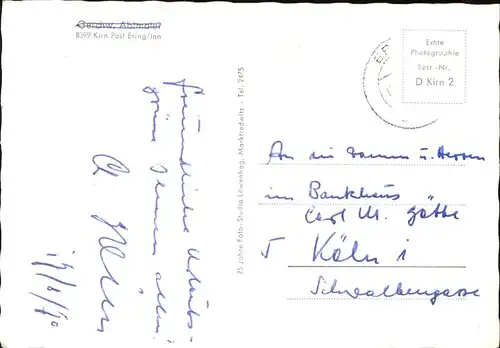 Geschw. Ablmaier
8399 Kirn Post Ering/Inn
freundliche Urlaubs-
grüsse Ihnen allen!
19/8/70
75 Jahre Foto-Studio Löwenhag, Marktredwitz - Tel. 2475
Echte
Photographie
Best.-Nr.
D Kirn 2
An die Damen u. Herren
im Bankhaus
Carl M. Götte
5 Köln 1
Schwalbengasse